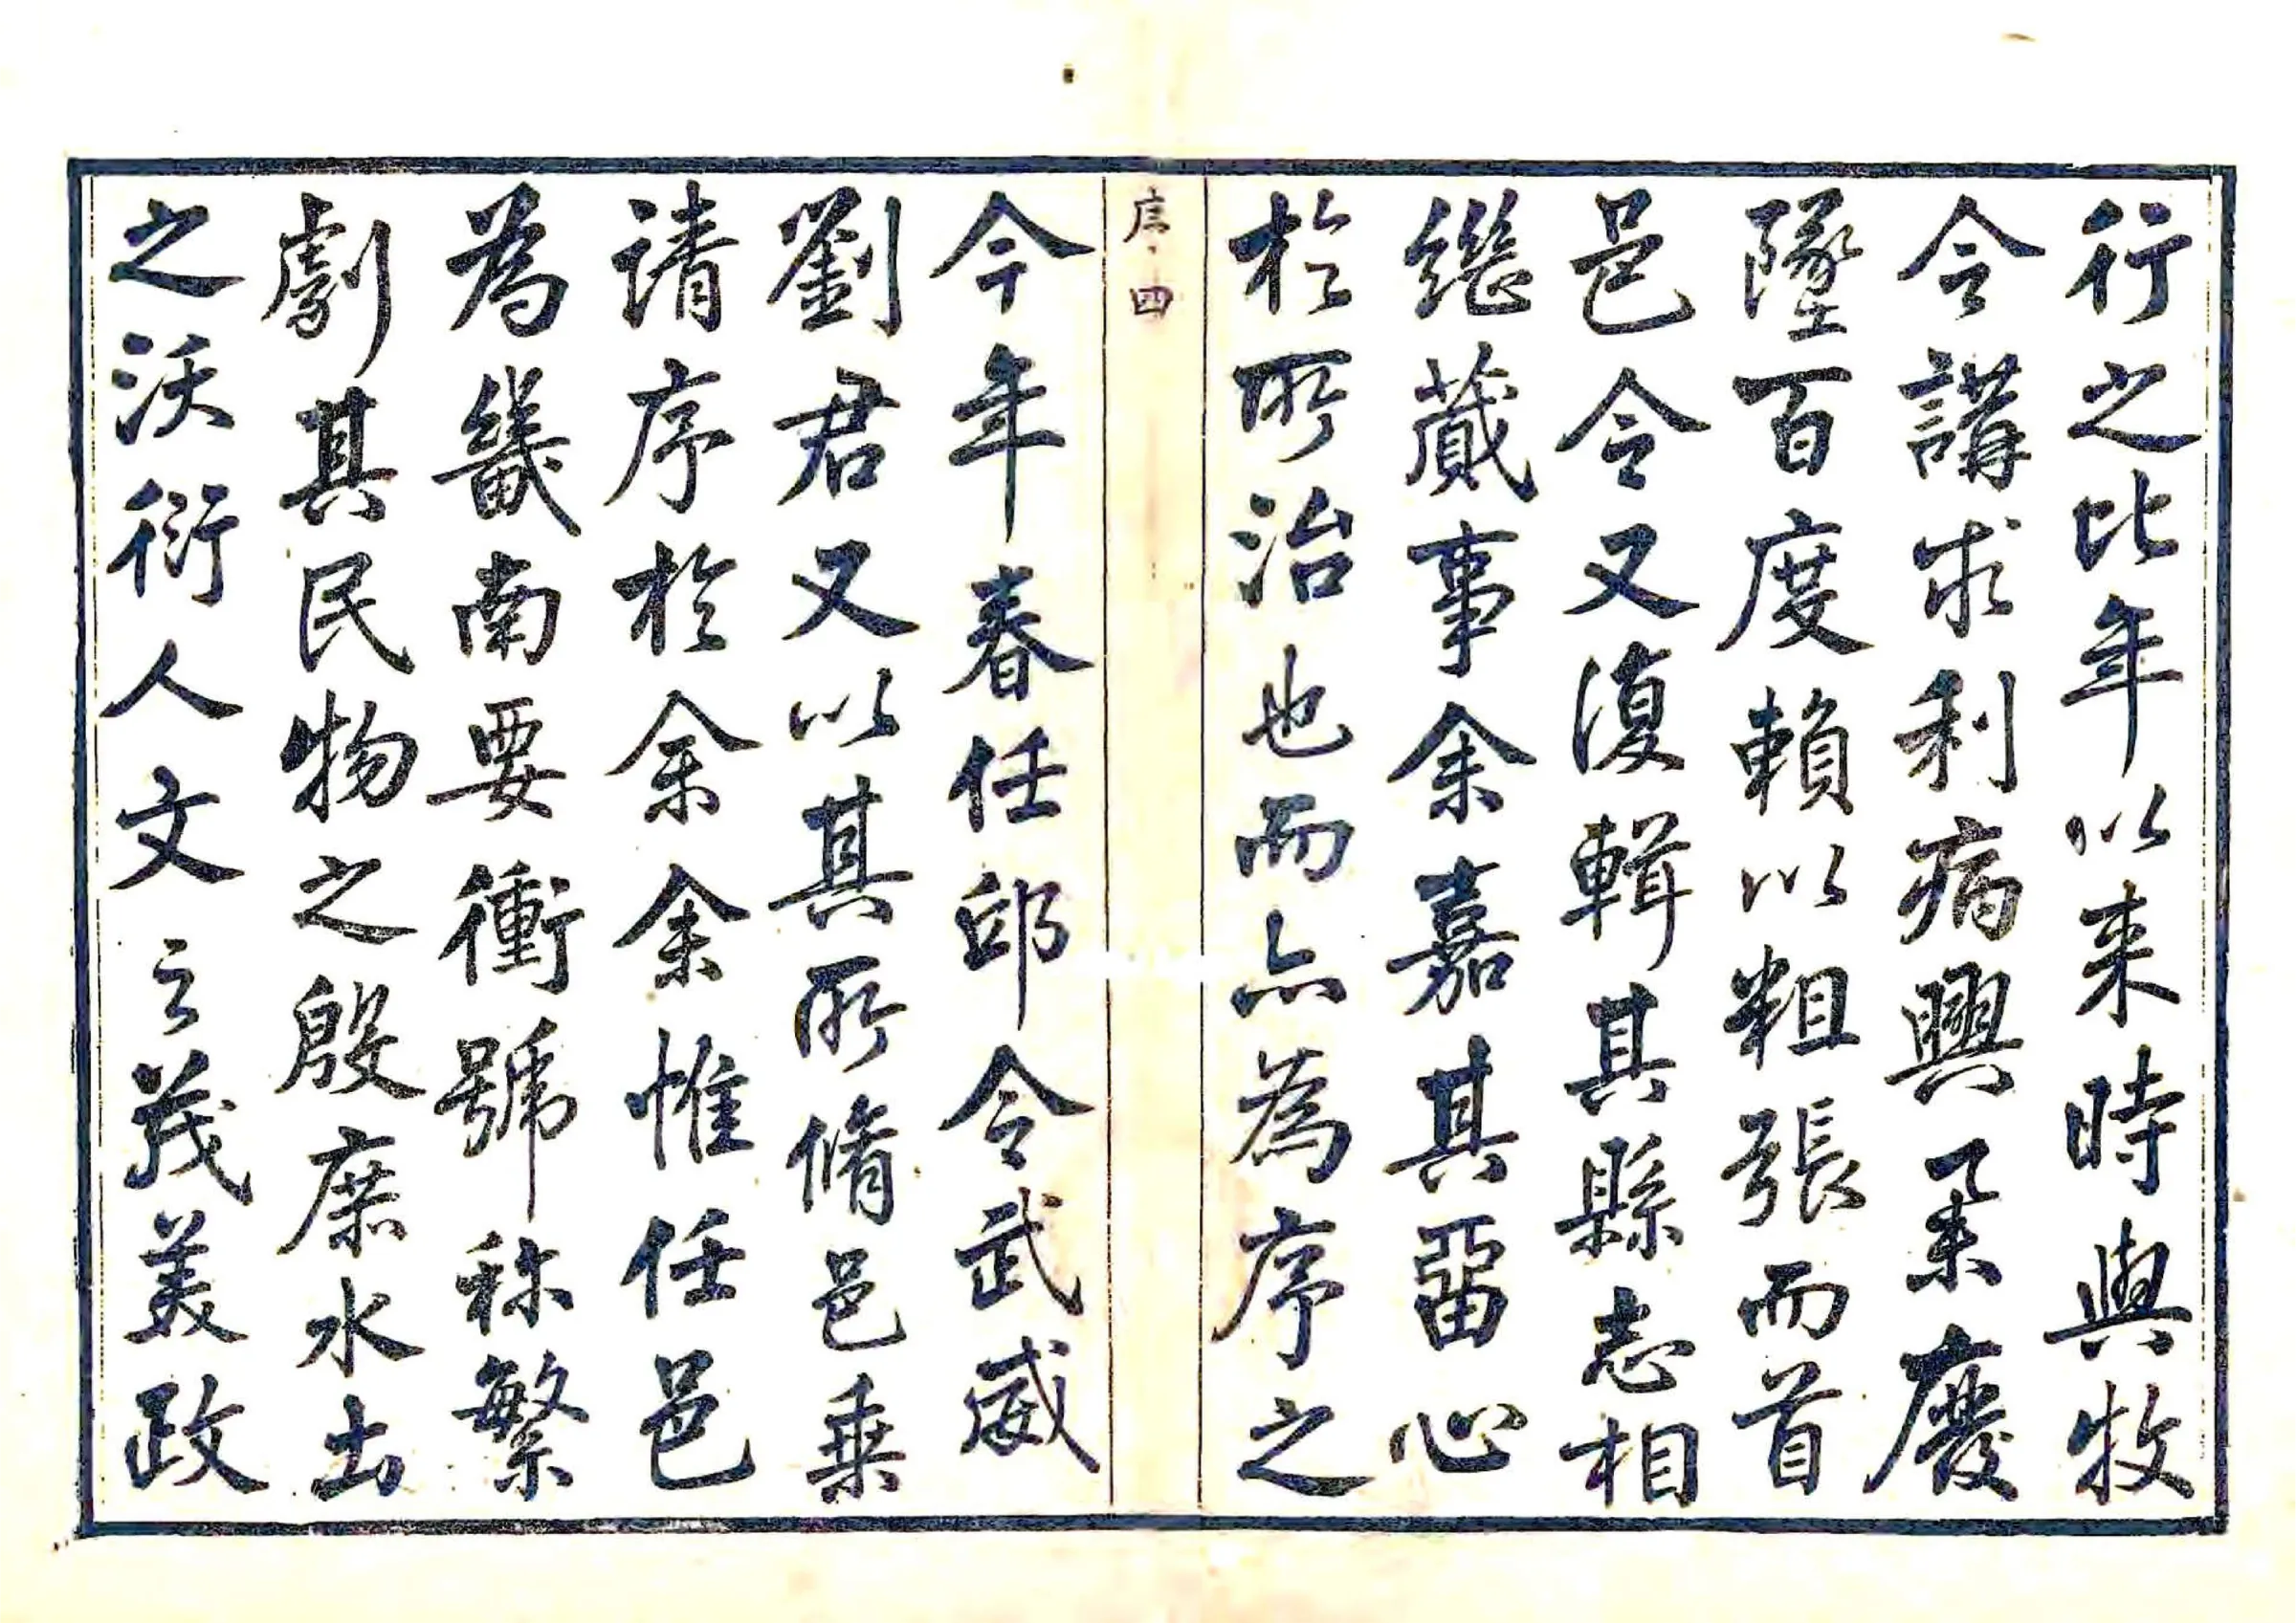 行之比年以来時與牧
令講求利病興柔廢
墬百度賴以粗張而首
邑令又復輯其縣志相
繼蕆事余嘉其畱心
於所治也而亦為序之
序 四
今年春任邱令武威
劉君又以其所脩邑乗
请序於余余惟任邑
為畿南要衝號称繁
劇其民物之殷庶水土
之沃衍人文之茂美政